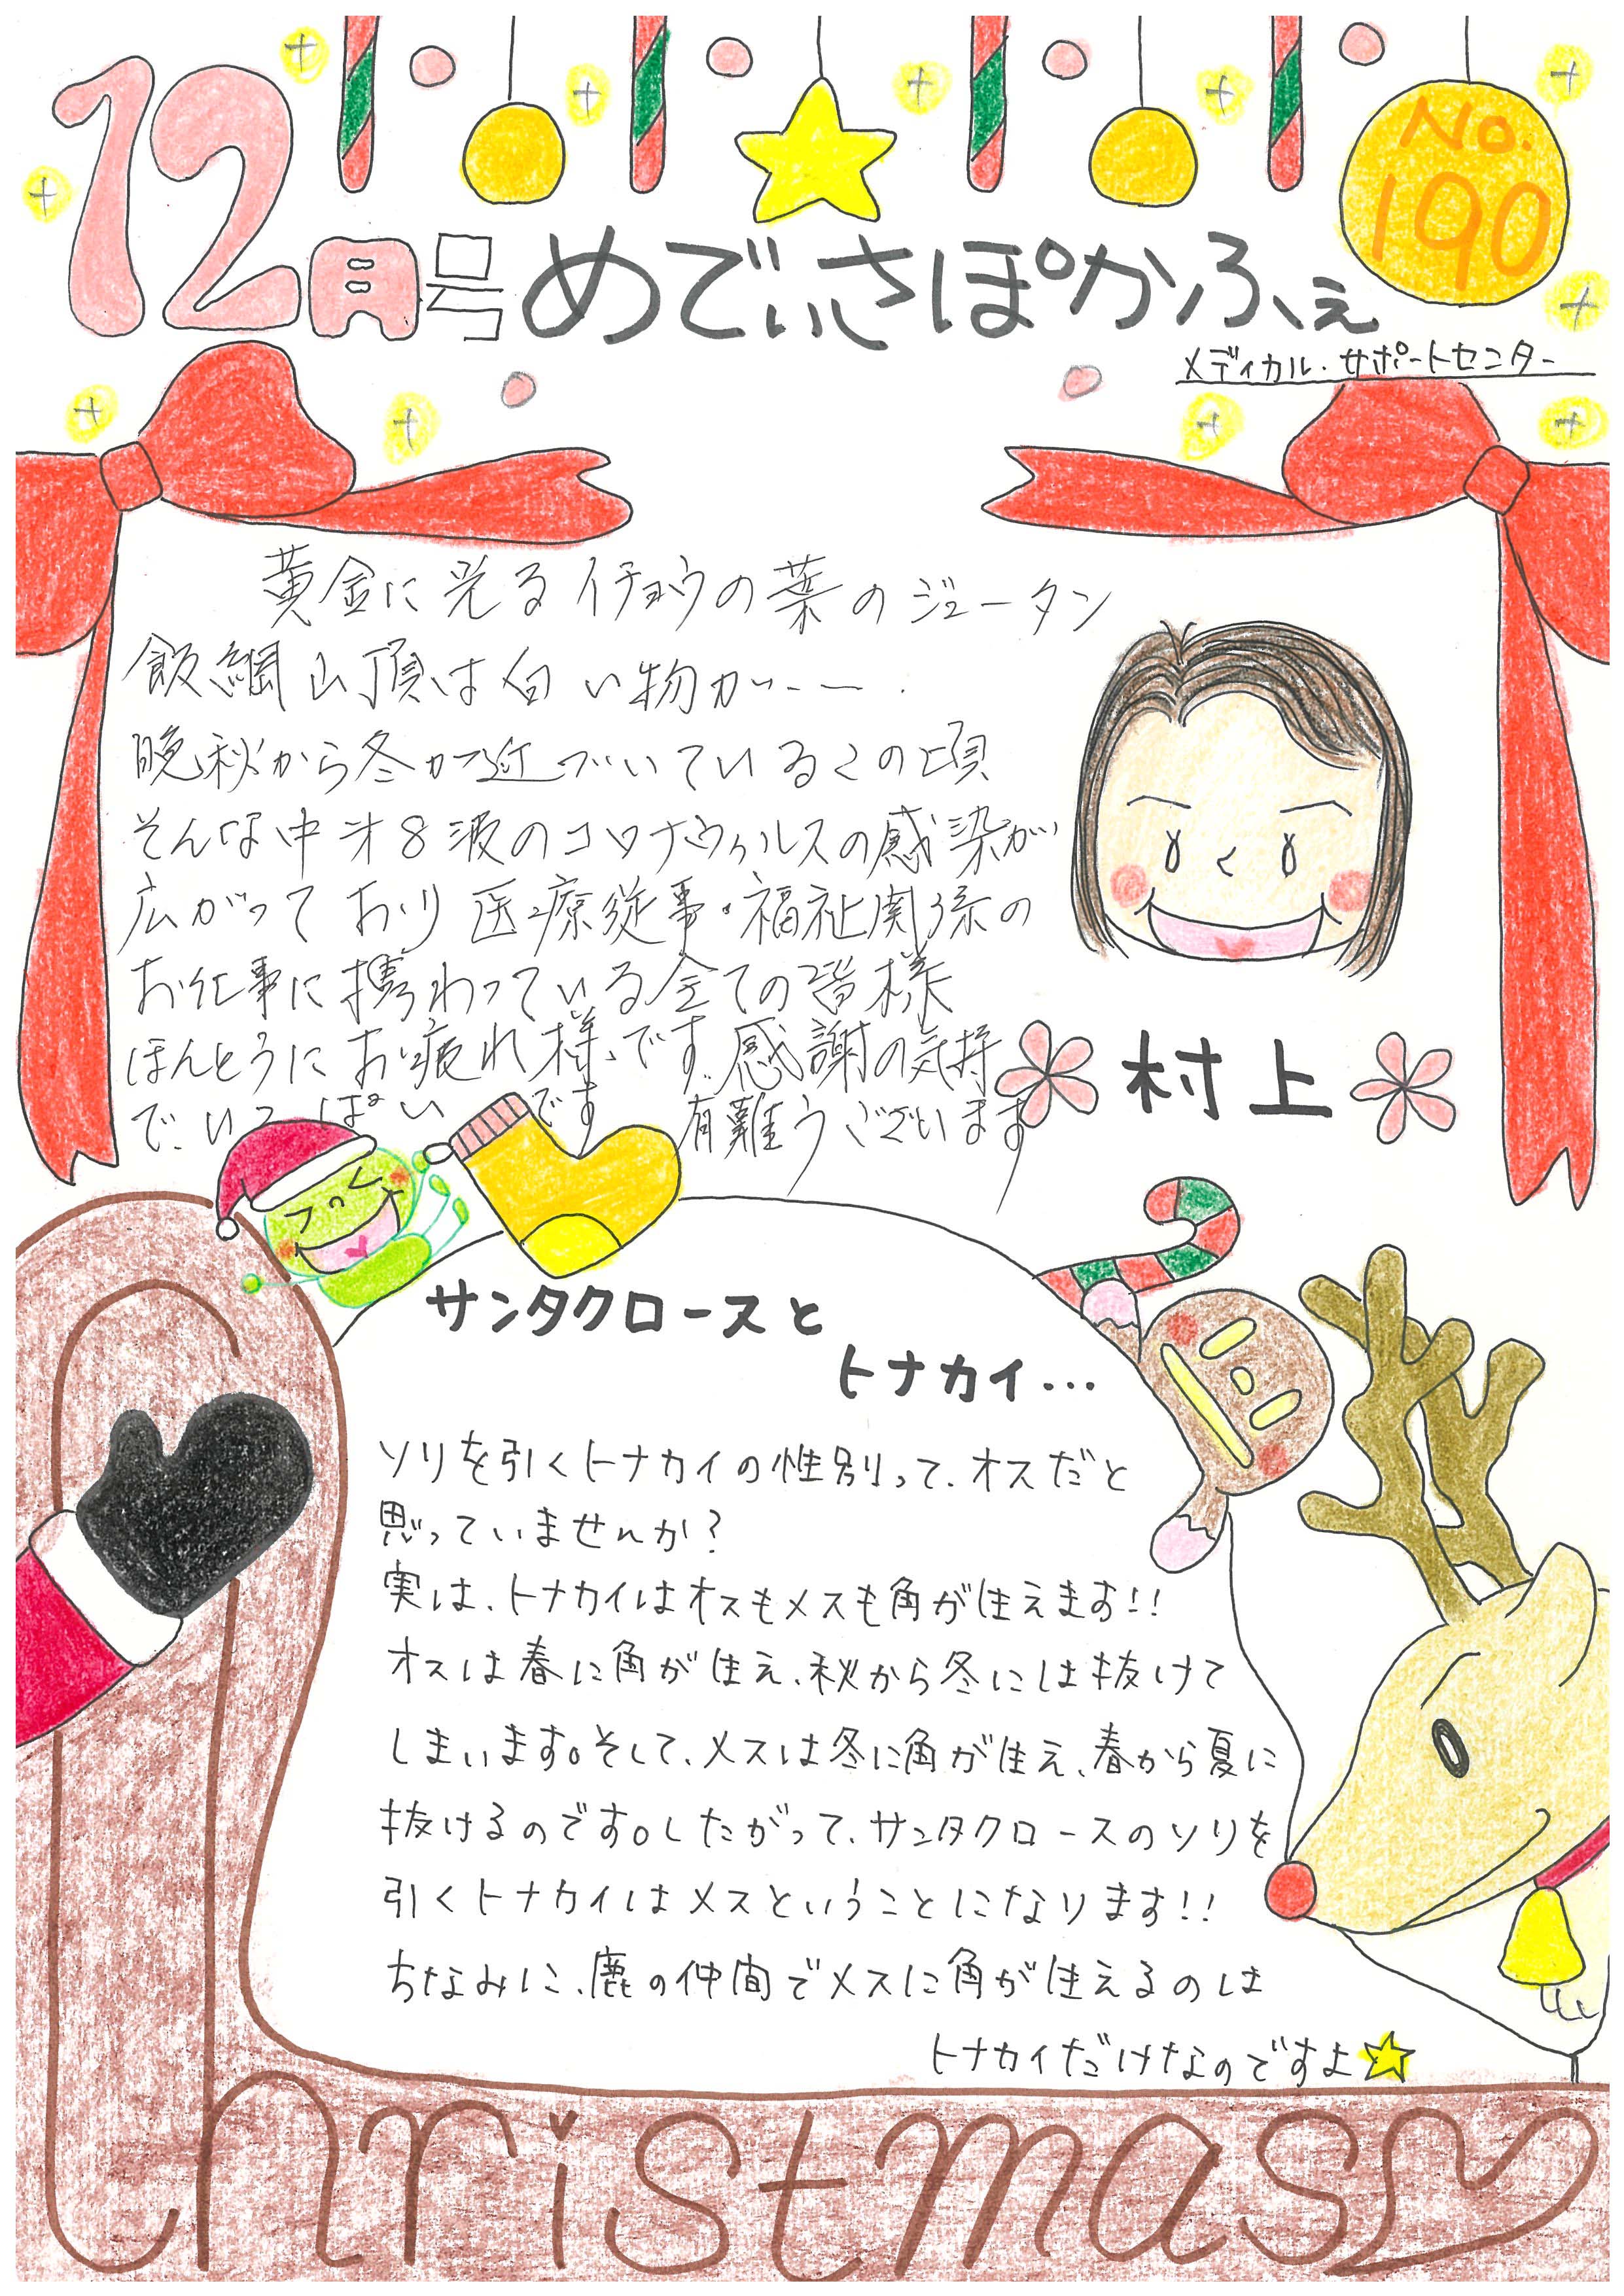 12月号 めでぃさぽかふぇ
No.
190
メディカル・サポートセンター
黄金に光るイチョウの葉のジュータン
飯綱山頂は白い物が---.
晩秋から冬が近づいているこの頃
そんな中才8波のコロナウィルスの感染が
広がっており 医療従事・福祉関係の
お仕事に携わっている全ての皆様
ほんとうにお疲れ様です.感謝の気持
でいっぱいです 有難うございます
村上
サンタクロースと
トナカイ...
ソリを引くトナカイの性別って、オスだと
思っていませんか?
実は、トナカイはオスもメスも角が生えます!!
オスは春に角が生え、秋から冬には抜けて
しまいます。そして、メスは冬に角が生え、春から夏に
抜けるのです。したがって、サンタクロースのソリを
引くトナカイはメスということになります!!
ちなみに、鹿の仲間でメスに角が生えるのは
トナカイだけなのですよ☆
Christmas